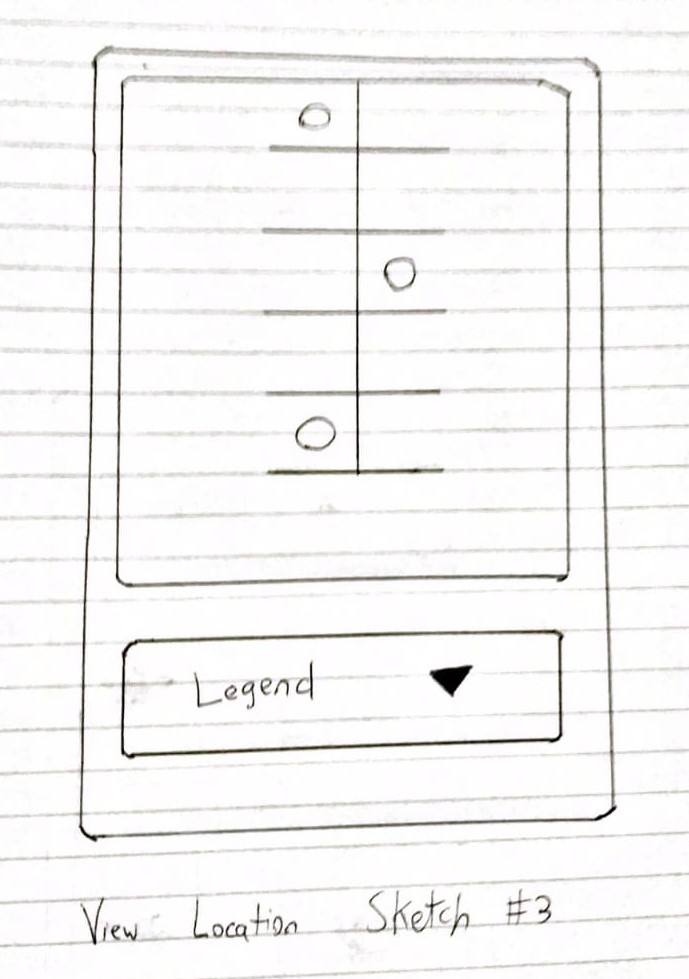 Legend
View Location Sketch #3